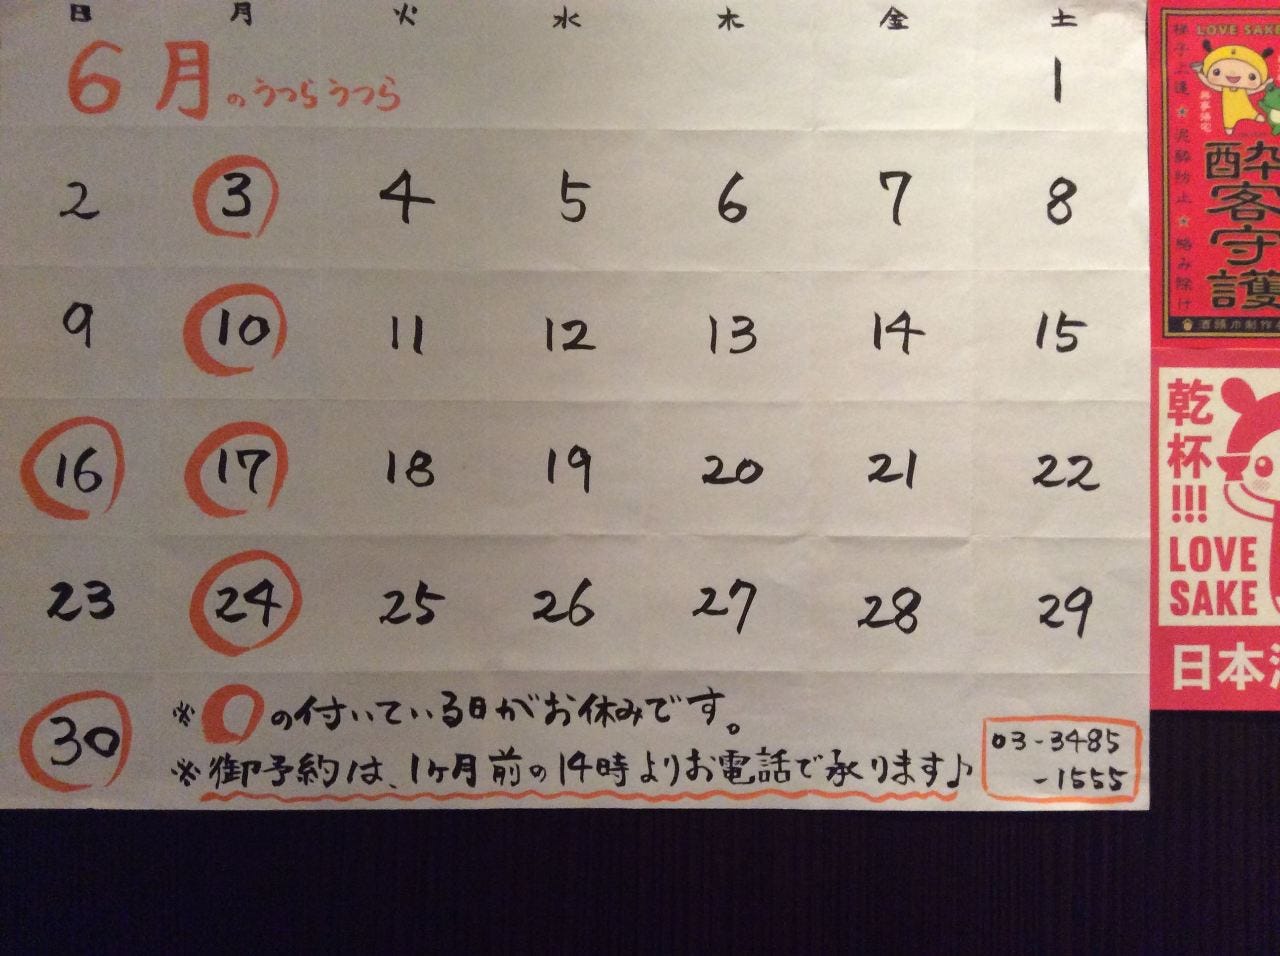 日 月 火 水 木 金 土
6月のうつらうつら
1
2 3 4 5 6 7 8
9 10 11 12 13 14 15
16 17 18 19 20 21 22
23 24 25 26 27 28 29
30
※○の付いている日がお休みです。
※御予約は、1ヶ月前の14時よりお電話で承ります♪
03-3485
-1555
LOVE SAKE
梯子上達★泥酔防止★絡み除け
酔客守護
乾杯!!!
LOVE
SAKE
日本